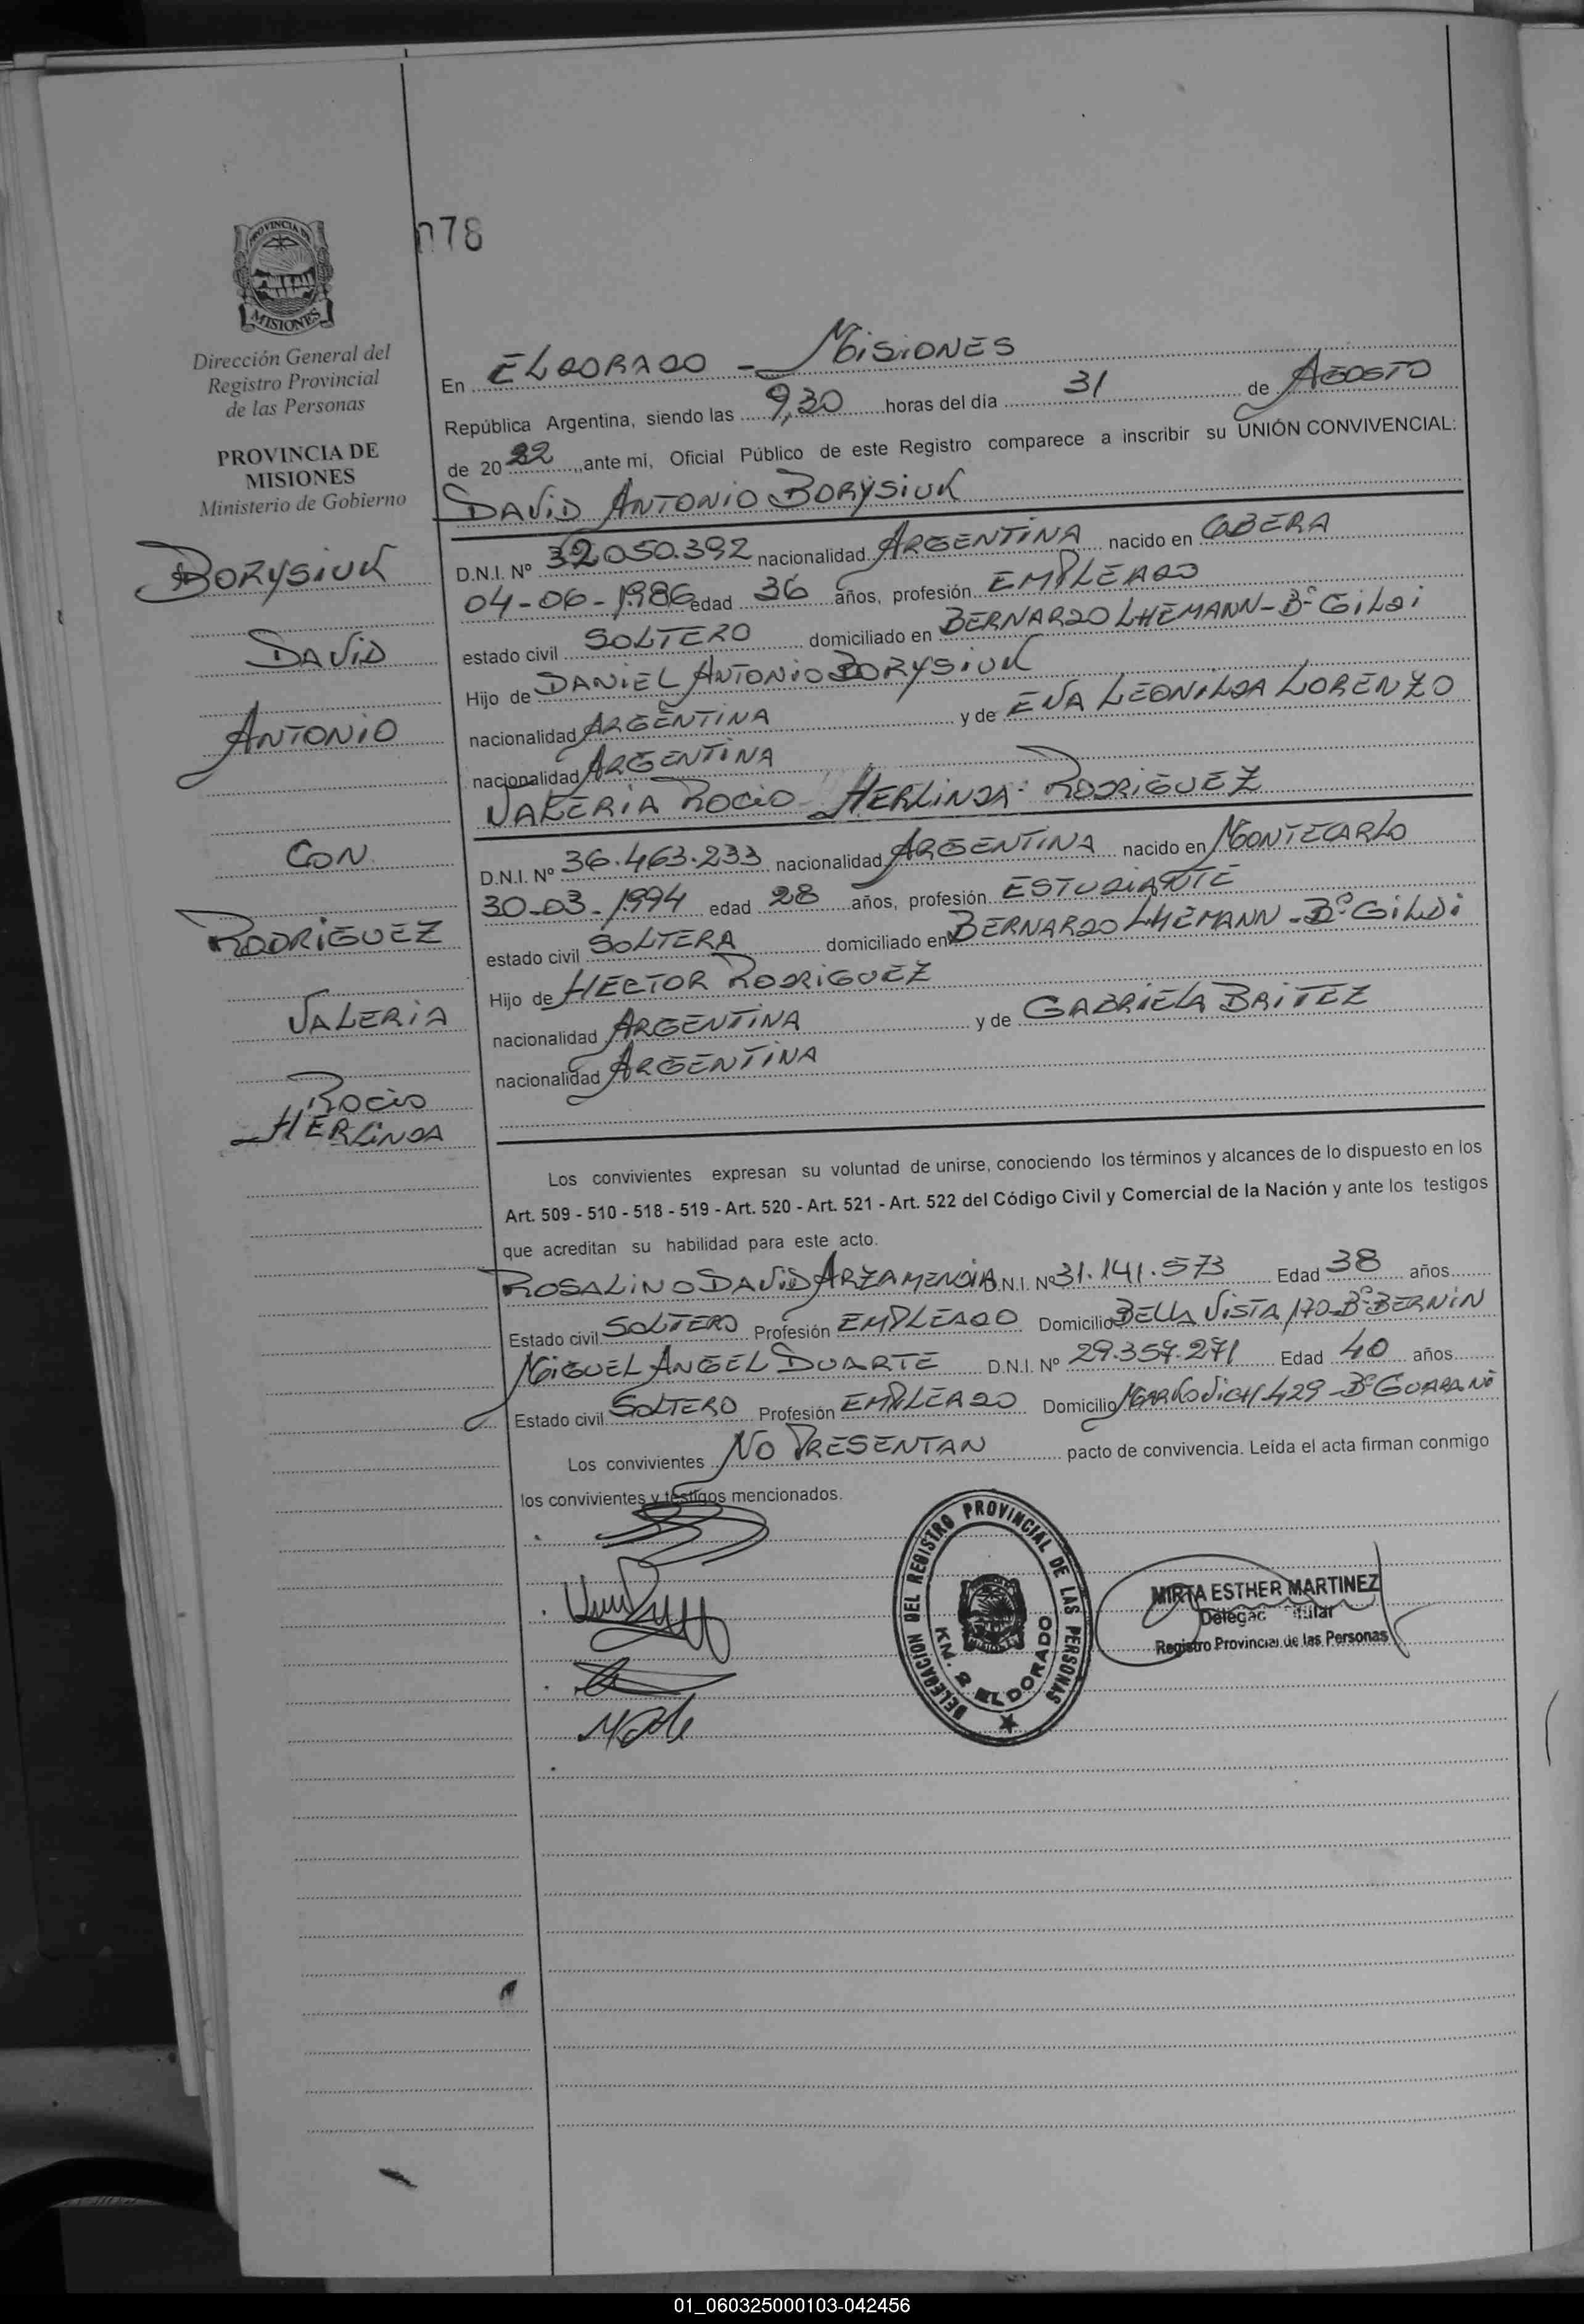 078
PROVINCIA DE
MISIONES
Dirección General del
Registro Provincial
de las Personas
PROVINCIA DE
MISIONES
Ministerio de Gobierno
BORYSIUK
DAVID
ANTONIO
CON
RODRIGUEZ
VALERIA
ROCIO
HERLINDA
En ELDORADO - MISIONES
República Argentina, siendo las 9,30 horas del día 31 de AGOSTO
de 2022, ante mi, Oficial Público de este Registro comparece a inscribir su UNIÓN CONVIVENCIAL:
DAVID ANTONIO BORYSIUK
D.N.I. Nº 32050.392 nacionalidad ARGENTINA nacido en OBERA
04-06-1986 edad 36 años, profesión EMPLEADO
estado civil SOLTERO domiciliado en BERNARDO LHEMANN-Bº GILDI
Hijo de DANIEL ANTONIO BORYSIUK
nacionalidad ARGENTINA y de ENA LEONILDA LORENZO
nacionalidad ARGENTINA
VALERIA ROCIO HERLINDA RODRIGUEZ
D.N.I. Nº 36.463.233 nacionalidad ARGENTINA nacido en MONTECARLO
30-03-1994 edad 28 años, profesión ESTUDIANTE
estado civil SOLTERA domiciliado en BERNARDO LHEMANN-Bº GILDI
Hijo de HECTOR RODRIGUEZ
nacionalidad ARGENTINA y de GABRIELA BRITEZ
nacionalidad ARGENTINA
Los convivientes expresan su voluntad de unirse, conociendo los términos y alcances de lo dispuesto en los
Art. 509 - 510 - 518 - 519 - Art. 520 - Art. 521 - Art. 522 del Código Civil y Comercial de la Nación y ante los testigos
que acreditan su habilidad para este acto.
ROSALINO DAVID ARZAMENDIA D.N.I. Nº 31.141.573 Edad 38 años
Estado civil SOLTERO Profesión EMPLEADO Domicilio BELLA VISTA 170-Bº BERNIN
MIGUEL ANGEL DUARTE D.N.I. Nº 29.357.271 Edad 40 años
Estado civil SOLTERO Profesión EMPLEADO Domicilio 429-Bº GUARANI
Los convivientes NO PRESENTAN pacto de convivencia. Leída el acta firman conmigo
los convivientes y testigos mencionados.
DELEGACION DEL REGISTRO PROVINCIAL DE LAS PERSONAS
KM. 2 ELDORADO
MIRTA ESTHER MARTINEZ
Registro Provincial de las Personas
01_060325000103-042456